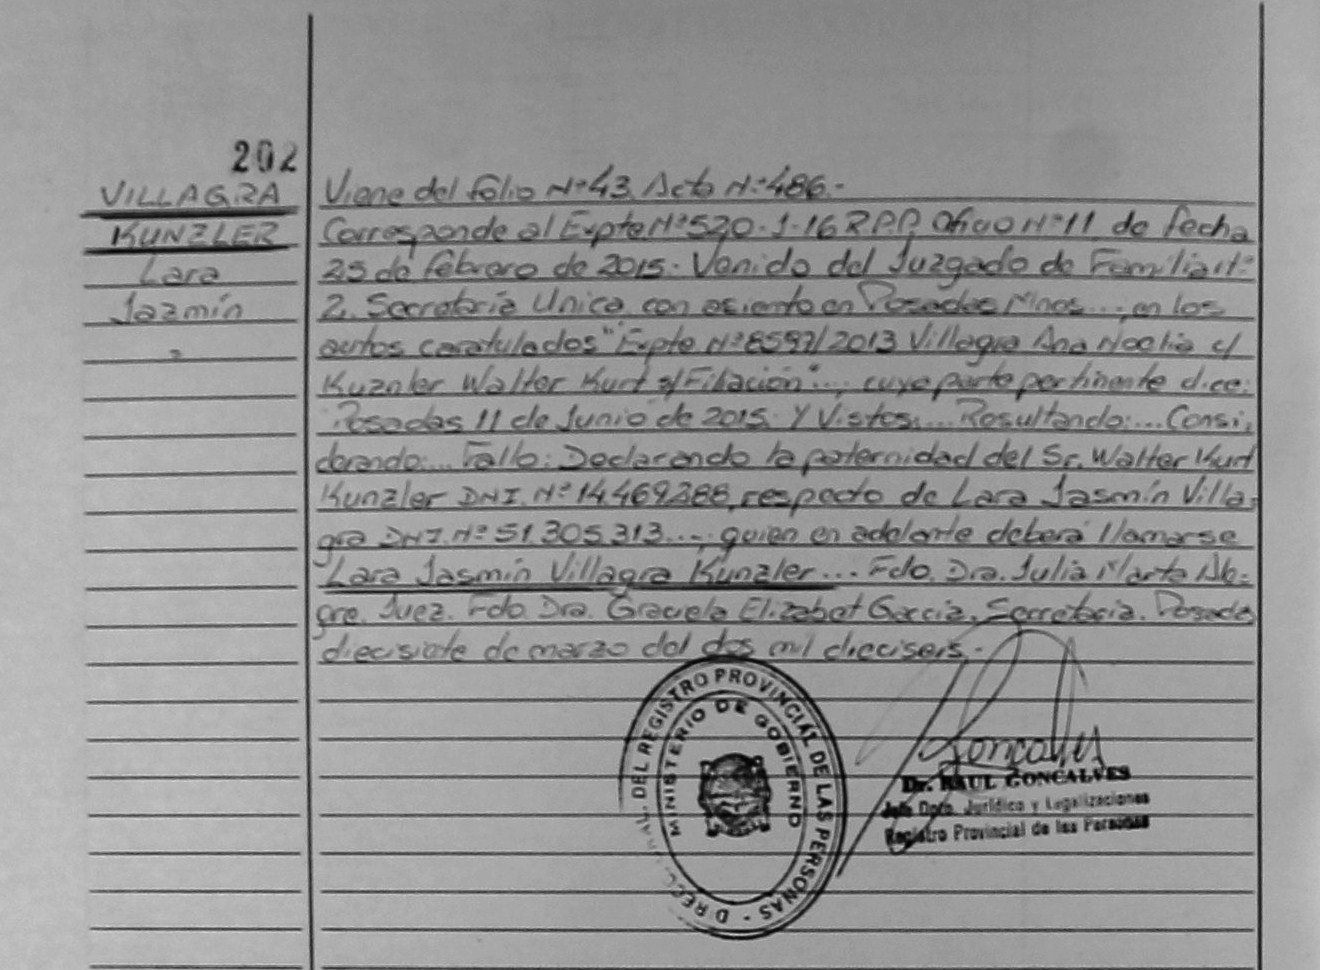 202
VILLAGRA
KUNZLER
Lara
Jazmín
Viene del folio Nº 43 Acta Nº 486.-
Corresponde al Expte Nº 520-1-16 R.P.P. Oficio Nº 11 de fecha
23 de febrero de 2015. Venido del Juzgado de Familia Nº
2. Secretaría Unica con asiento en Posadas Mnes..., en los
autos caratulados "Expte Nº 8597/2013 Villagra Ana Noelia c/
Kuznler Walter Kurt s/Filación"..., cuya parte pertinente dice:
Posadas 11 de Junio de 2015. Y Vistos:... Resultando:... Consi-
derando:... Fallo: Declarando la paternidad del Sr. Walter Kurt
Kunzler DNI. Nº 14.469.288, respecto de Lara Jasmín Villa-
gra DNI. Nº 51.305.313..., quien en adelante deberá llamarse
Lara Jasmín Villagra Kunzler... Fdo. Dra. Julia Marta Ale-
gre. Juez. Fdo. Dra. Graciela Elizabet Garcia. Secretaria. Posadas
diecisiete de marzo del dos mil dieciseis.-
DEL REGISTRO PROVINCIAL DE LAS PERSONAS -
MINISTERIO DE GOBIERNO
Goncalves
Dr. RAUL GONCALVES
Jefe Dpto. Jurídico y Legalizaciones
Registro Provincial de las Personas